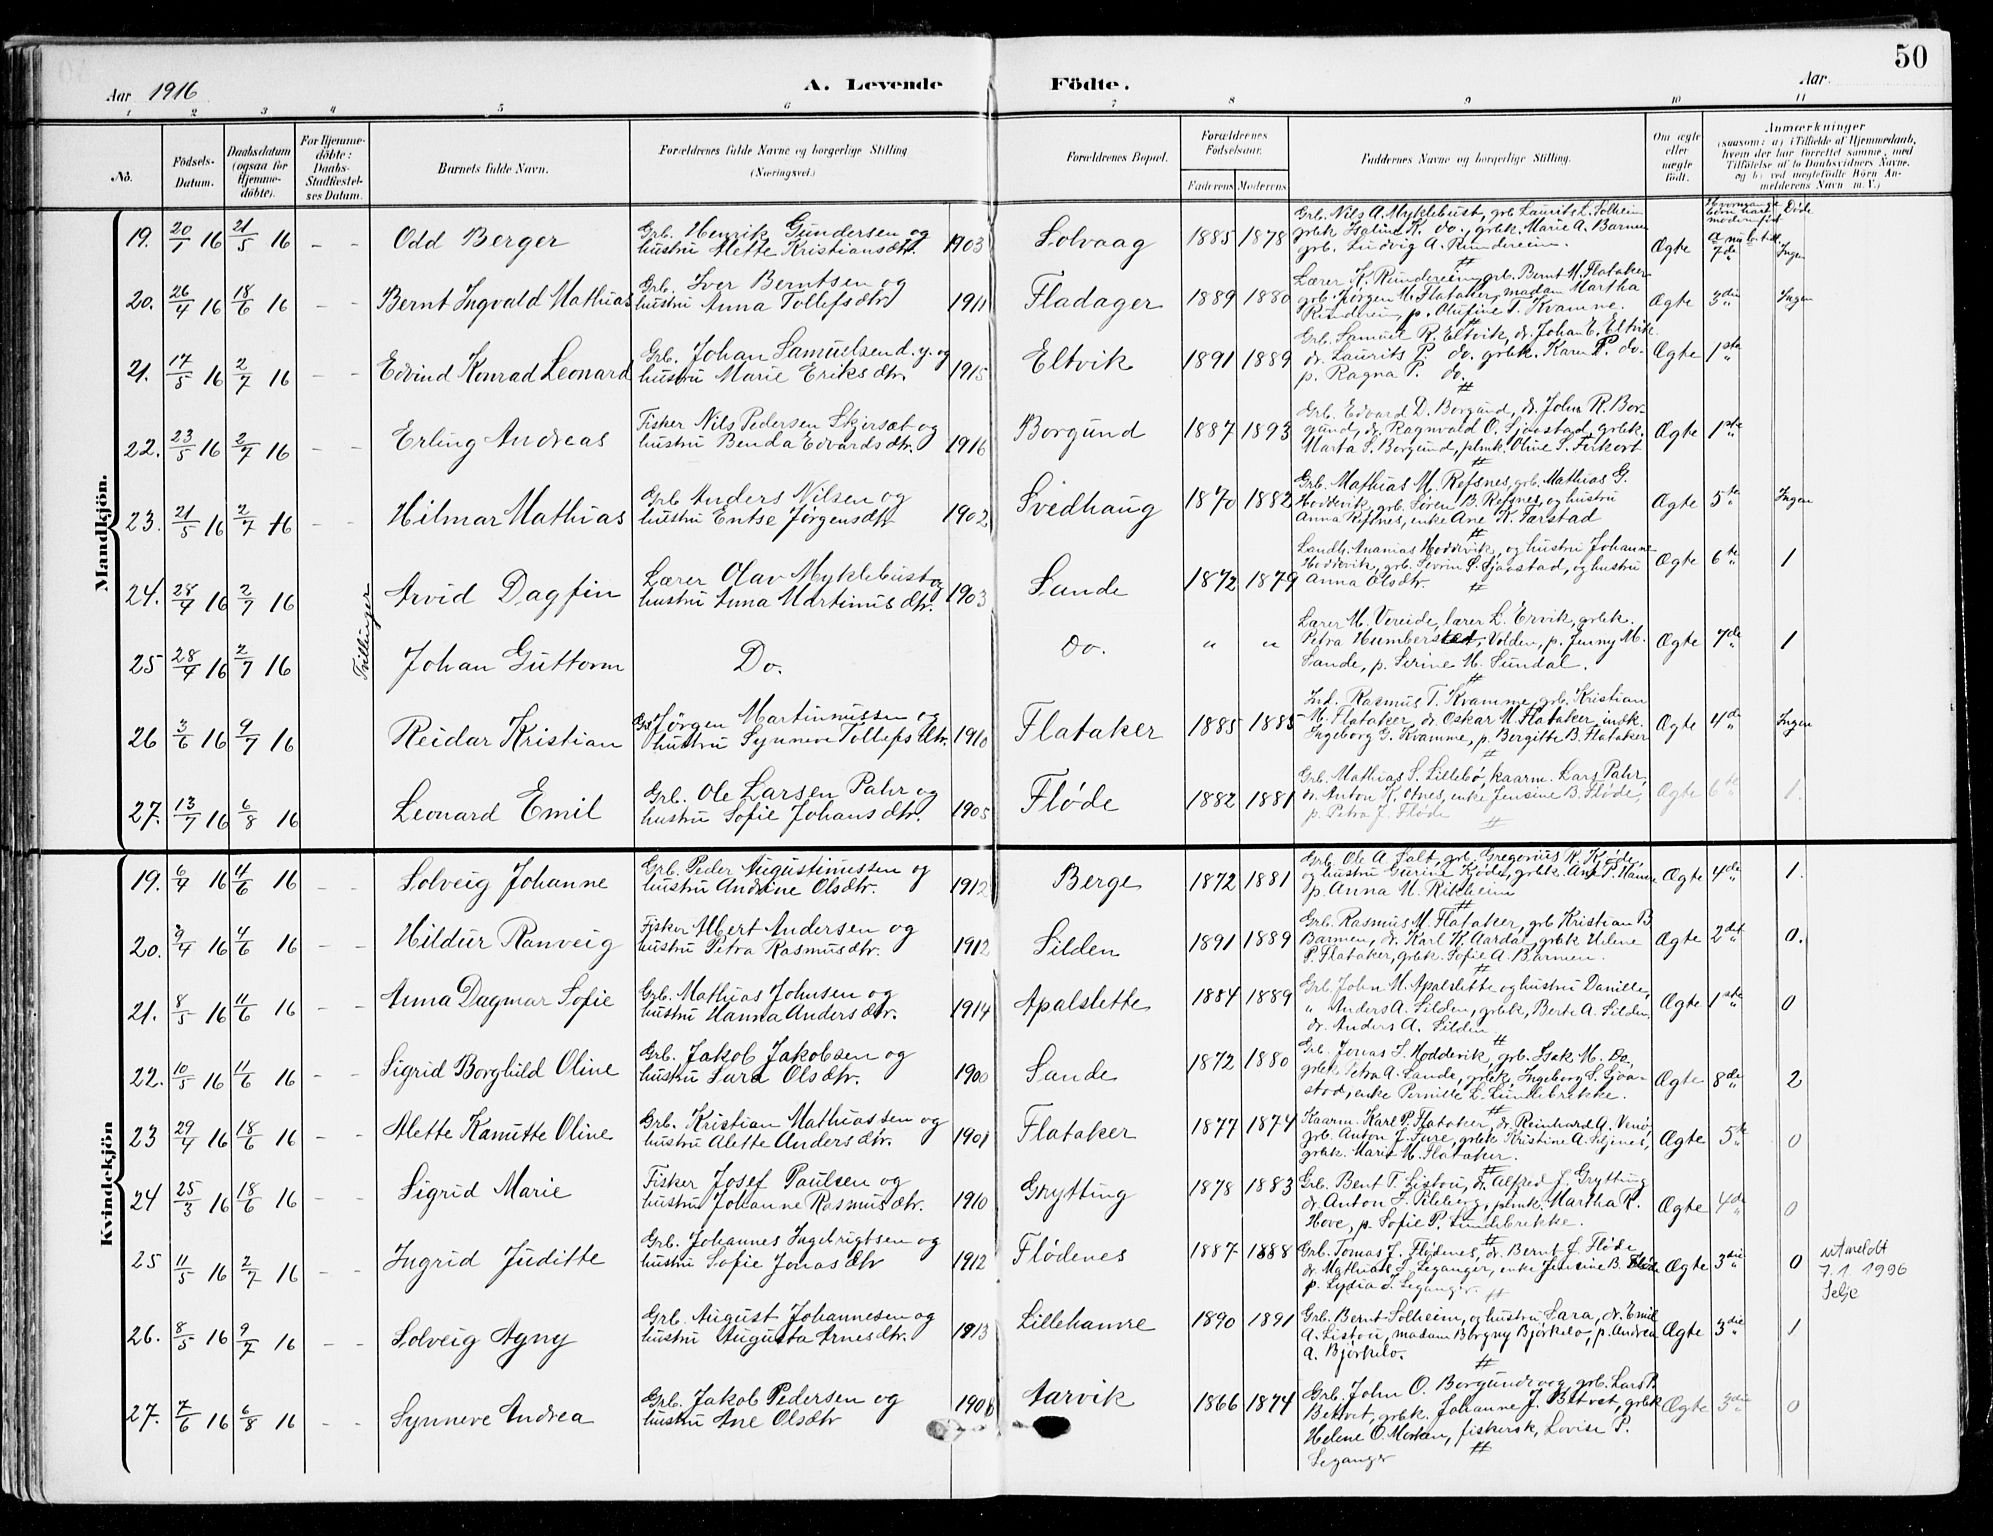 50
Aar 1916 A. Levende Födte. Aar
1 2 3 4 5 6 7 8 9 10 11
No. Födsels-Datum. Daabsdatum (ogsaa for Hjemmedöbte). For Hjemmedöbte: Daabs-Stadfæstelses Datum. Barnets fulde Navn. Forældrenes fulde Navne og borgerlige Stilling (Næringsvei.) Forældrenes Bopæl. Forældrenes Födselsaar. Faderens Moderens Faddernes Navne og borgerlige Stilling. Om ægte eller uægte födt. Anmærkninger (saasom: a) i Tilfælde af Hjemmedaab, hvem der har forrettet samme, med Tilföielse af to Daabsvidners Navne, og b) ved uægtefödte Börn Anmelderens Navn m. V.)
Mandkjön.
19. 20/7 16 21/5 16 - - Odd Berger Grb. Henrik Gundersen og 1903 Solvaag 1885 1878 Grb. Nils A. Myklebust, grb. Laurits L. Solheim
hustru Alette Kristiansdtr. grbk. K. do., grbk. Marie A. Barmen Ægte 7de Døde Ingen
grb. Ludvig A. Rundereim.
20. 26/4 16 18/6 16 - - Bernt Ingvald Mathias Grb. Iver Berntsen og 1911 Fladager 1889 1880 Lærer K. Rundereim, grb. Bernt M. Flataker
hustru Anna Tollefsdtr grb. Jørgen M. Flataker, madam Martha Ægte 3die Ingen
Rundereim, p. Olufine T. Kvamme.
21. 17/5 16 2/7 16 - - Edvind Konrad Leonard Grb. Johan Samuelsen d. y. og 1915 Eltvik 1891 1889 Grb. Samuel R. Eltvik, dr. Johan E. Eltvik
hustru Marie Eriksdtr. dr. Laurits P. do. grbk. Karen P. do. Ægte 1ste
p. Ragna P. do.
22. 23/5 16 2/7 16 - - Erling Andreas Fisker Nils Pedersen Skjersæt og 1916 Borgund 1887 1893 Grb. Edvard D. Borgund, dr. John R. Bor-
hustru Benda Edvardsdtr. gund, dr. Ragnvald O. Sjaastad, grbk. Ægte 1ste
Marta S. Borgund, plmk. Oline S.
23. 21/5 16 2/7 16 - - Hilmar Mathias Grb. Anders Nilsen og 1902 Svedhaug 1870 1882 Grb. Mathias M. Refsnes, grb. Mathias G.
hustru Entse Jørgensdtr Hoddevik, grb. Søren B. Refsnes, og hustru Ægte 5te Ingen
Anna Refsnes, enke Ane K. Færstad
24. 28/4 16 2/7 16 Arvid Dagfin Lærer Olav Myklebust og 1903 Sande 1872 1879 Landh. Ananias Hoddevik, og hustru Johanne
hustru Anna Martinusdtr. Hoddevik, grb. Severin S. Sjaastad, og hustru Ægte 6te 1
Anna Olsdtr.
Tvillinger
25 28/4 16 2/7 16 Johan Guttorm Do. Do. " " Lærer M. Vereide, lærer L. Ervik, grbk.
Petra Humberset, Volden, p. Jenny M. Ægte 7de 1
Sande, p. Serine M. Sundal.
26 3/6 16 9/7 16 Reidar Kristian Grb. Jørgen Martinussen og 1910 Flataker 1885 1885 Ind. Rasmus T. Kvamme, grb. Kristian
hustru Synneve Tollefsdtr. M. Flataker, dr. Oskar M. Flataker, indk. Ægte 4de Ingen
Ingeborg G. Kvamme, p. Bergitte B. Flataker
27. 13/7 16 6/8 16 Leonard Emil Grb. Ole Larsen Pahr og 1905 Fløde 1882 1881 Grb. Mathias S. Lillebø, kaarm. Lars Pahr,
hustru Sofie Johansdtr. dr. Anton K. Otnes, enke Jensine B. Fløde, Ægte 6te 1.
p. Petra J. Fløde
Kvindekjön
19. 6/4 16 4/6 16 - - Solveig Johanne Grb. Peder Augustinussen og 1912 Berge 1872 1881 Grb. Ole A. Salt, grb. Gregorius R. Kjøde,
hustru Andrine Olsdtr. og hustru Gurine Kjøde, grbk. Ane P. Hamre Ægte 4de 1.
p. Anna M. Rikheim
20. 9/4 16 4/6 16 - - Hildur Ranveig Fisker Albert Andersen og 1912 Silden 1891 1889 Grb. Rasmus M. Flataker, grb Kristian B
hustru Petra Rasmusdtr. Barmen, dr. Karl K. Aardal, grbk. Helene Ægte 2det 0.
P. Flataker, grbk. Sofie A. Barmen.
21. 8/5 16 11/6 16 - - Anna Dagmar Sofie Grb. Mathias Johnsen og 1914 Apalslette 1884 1889 Grb. John M. Apalslette og hustru Danille,
hustru Hanna Andersdtr. " Anders A. Silden, grbk. Berte A. Silden, Ægte 1ste 0
dr. Anders A. Silden.
22. 10/5 16 11/6 16 - - Sigrid Borghild Oline Grb. Jakob Jakobsen og 1900 Sande 1872 1880 Grb. Jonas S. Hoddevik, grb. Isak M. Do,
hustru Sara Olsdtr. grbk. Petra A. Sande, grbk. Ingeborg S. Sjaa- Ægte 8de 2
stad, enke Pernille L. Lundebrekke.
23 29/4 16 18/6 16 - - Alette Kanutte Oline Grb. Kristian Mathiassen og 1901 Flataker 1877 1874 Kaarm. Karl P. Flataker, dr. Reinhard A. Venø,
hustru Alette Andersdtr. grb. Anton J. Fure, grbk. Kristine A. Seljenes, Ægte 5te 0
grbk. Marie M. Flataker.
24 25/3 16 18/6 16 - - Sigrid Marie Fisker Josef Paulsen og 1910 Grytting 1878 1883 Grb. Bent T. Listou, dr. Alfred J. Grytting
hustru Johanne Rasmusdtr. dr. Anton S. Pileberg, plmk. Martha R. Ægte 4de 0
Hove, p. Sofie P. Lundebrekke.
25 11/5 16 2/7 16 - - Ingrid Juditte Grb. Johannes Ingebrigtsen og 1912 Flødenes 1887 1888 Grb. Tomas J. Flødenes, dr. Bernt J. Fløde
hustru Sofie Jonasdtr dr. Mathias J. Seganger, enke Jensine B. Fløde Ægte 3die 0 utmeldt
p. Lydia J. Seganger. 7.1.1996
Selje
26. 8/5 16 9/7 16 - - Solveig Agny Grb. August Johannesen og 1913 Lillehamre 1890 1891 Grb. Bernt Solheim, og hustru Sara, dr. Emil
hustru Augusta Arnesdtr. A. Listou, madam Borgny Bjørkelo, p. Andrea Ægte 3die 1
A. Bjørkelo.
27. 7/6 16 6/8 16 - - Synneve Andrea Grb. Jakob Pedersen og 1908 Aarvik 1866 1874 Grb. John O. Borgundvaag, grb. Lars P.
hustru Ane Olsdtr Betvet, grbk. Johanne J. Betvet, grbk Ægte 3die 0
Helene O. Morken, fiskersk. Lovise P.
Seganger